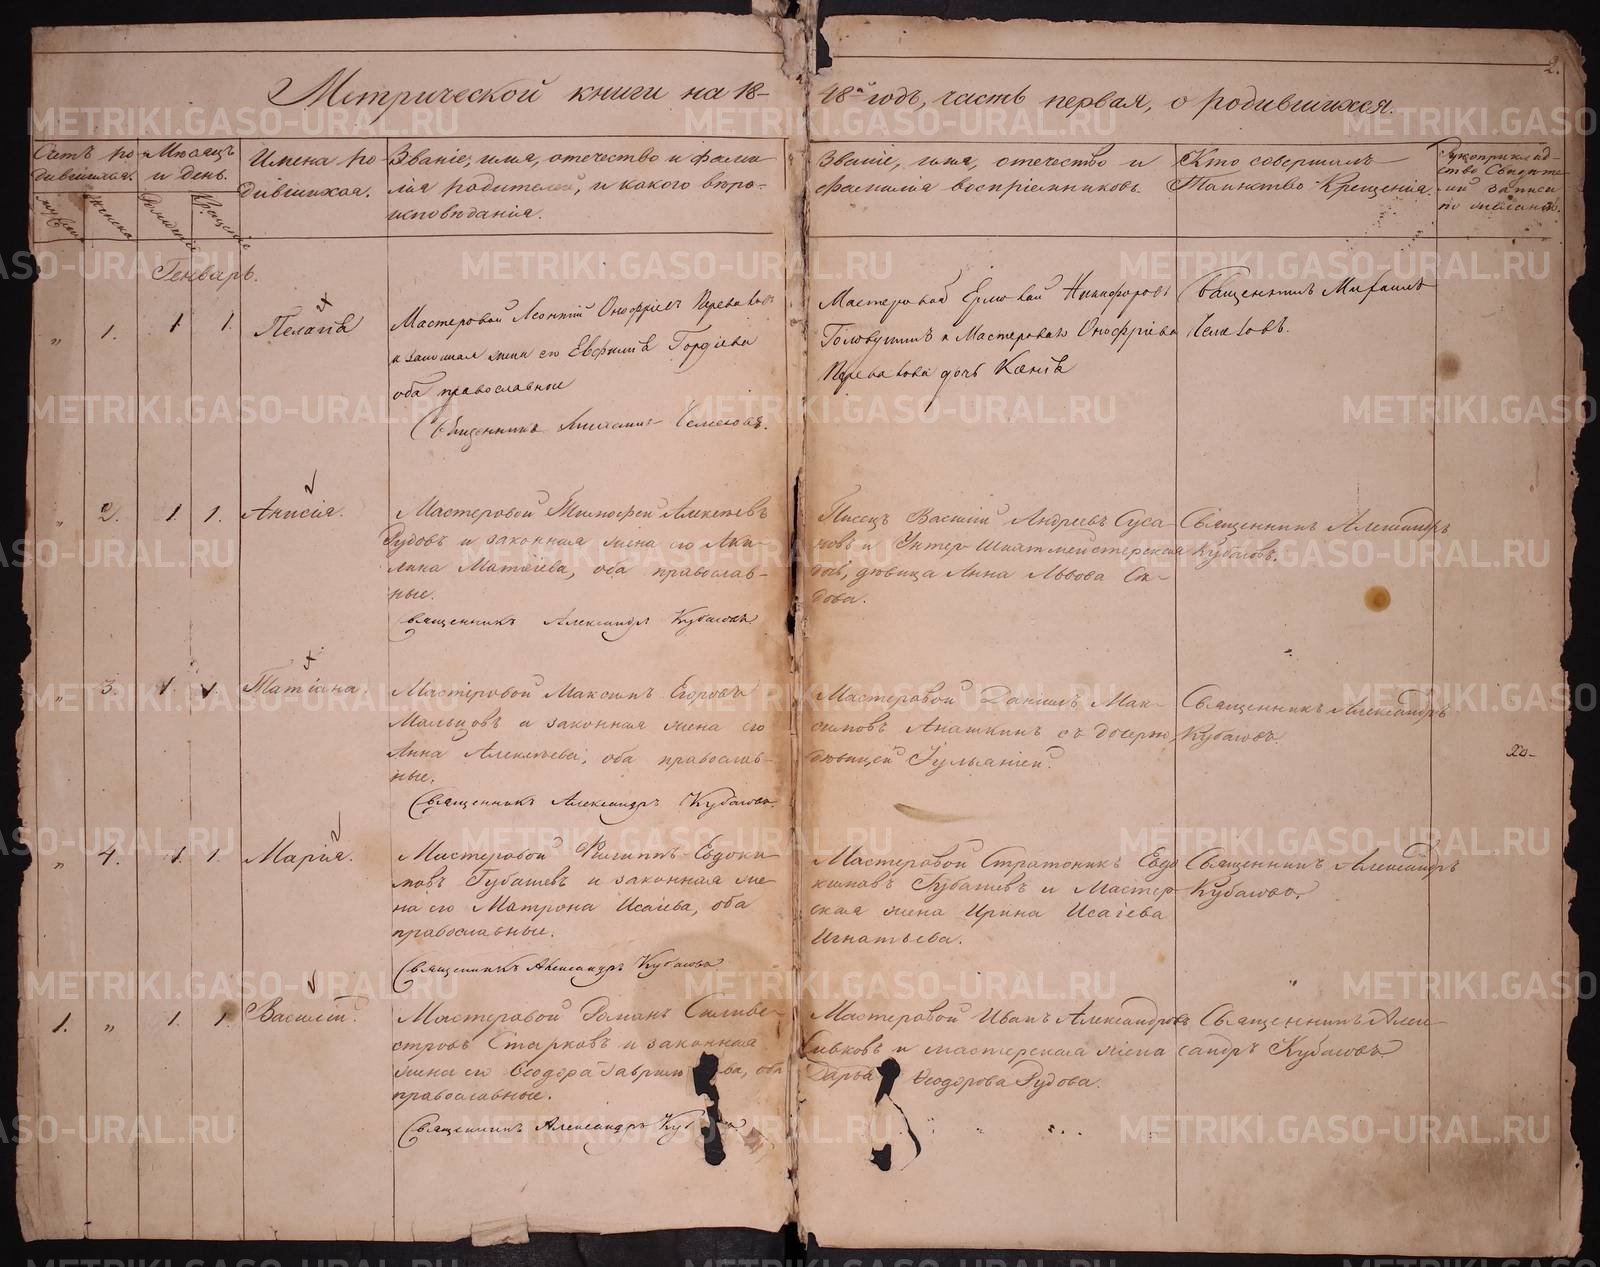 2.
Метрической книги на 18-
48й годъ, часть первая, о родившихся.
Счетъ ро-
дившихся.
Мѣсяцъ
и день.
Имена ро-
дившихся.
Званіе, имя, отечество и фами-
лія родителей, и какого вѣро-
исповѣданія.
Званіе, имя, отечество и
фамилія воспріемниковъ.
Кто совершалъ
Таинство Крещенія.
Рукоприклад-
ство Свидѣте-
лей записи
по желанію.
мужеска
женска
Рожденія
Крещенія
Генварь.
" 1. 1 1. Пелагія
Мастеровой Леонтій Онофріевъ
и законная жена его Евфимія Гордіева
оба православные
Священникъ Михаилъ
Мастеровой Никифоровъ
и Мастероваго Онофріева
дочь
Священникъ Михаилъ
" 2. 1. 1. Анисія.
Мастеровой Тимофей Алексѣевъ
Рудовъ и законная жена его Аки-
лина Матвіева, оба православ-
ные.
Священникъ Александръ Кубасовъ
Писецъ Василій Андреевъ Суса-
новъ и Унтер Шихтмейстерская
дѣвица Анна Львова
Священникъ Александръ
Кубасовъ.
" 3. 1. 1. Татіана.
Мастеровой Максимъ Егоровъ
Мальцовъ и законная жена его
Анна Алексѣева, оба православ-
ные.
Священникъ Александръ Кубасовъ.
Мастеровой Даніилъ Мак-
симовъ Анашкинъ съ дочерью
дѣвицей Іульяніей.
Священникъ Александръ
Кубасовъ.
" 4. 1. 1. Марія.
Мастеровой Филиппъ Евдоки-
мовъ Губашевъ и законная же-
на его Матрона Исаіева, оба
православные.
Священникъ Александръ Кубасовъ
Мастеровой Стратоникъ Евдо-
кимовъ Губашевъ и Мастер-
ская жена Ирина Исаіева
Игнатьева.
Священникъ Александръ
Кубасовъ.
1. " 1. 1. Василій.
Мастеровой Романъ Сильве-
стровъ Старковъ и законная
жена его Ѳеодора Гаврилова, оба
православные.
Священникъ Александръ Куб
Мастеровой Иванъ Александровъ
Сивковъ и мастерская жена
Дарья Ѳеодорова Рудова.
Священникъ Алек-
сандръ Кубасовъ.
METRIKI.GASO-URAL.RU